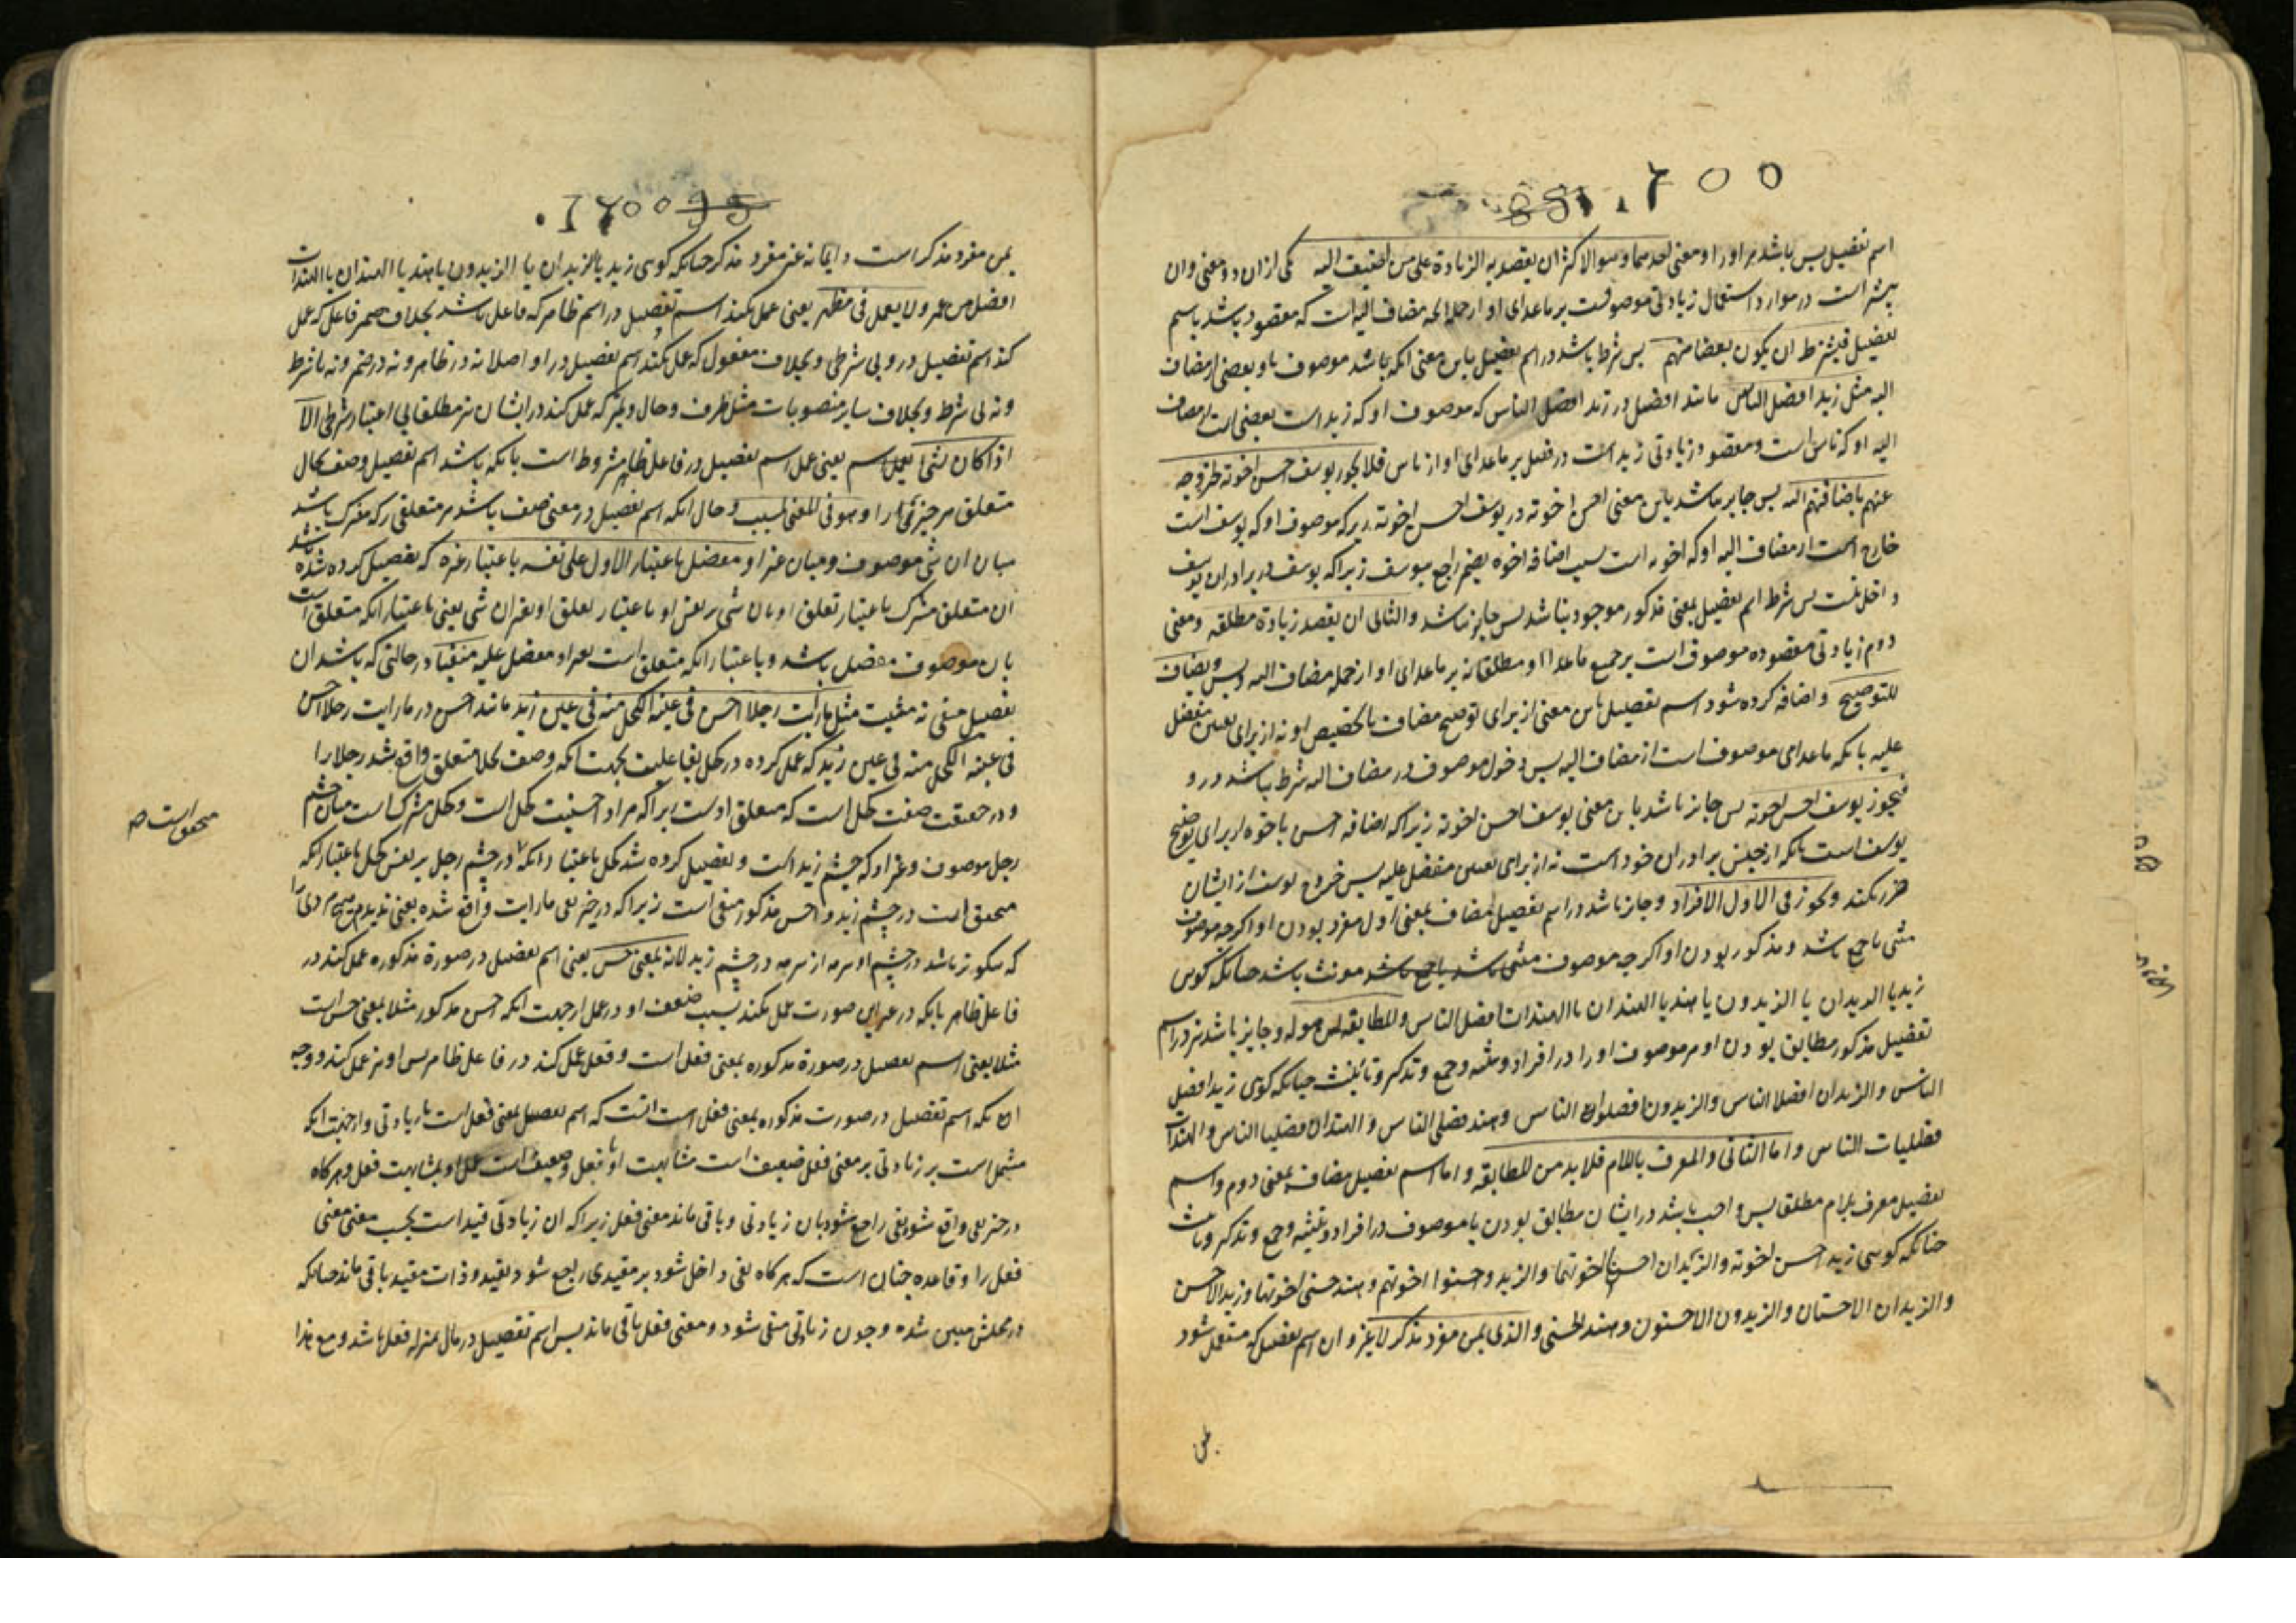 اسم تفضیل پس باشد مر او را دو معنی احدهما وهو الاکثر ان یقصد به الزیادة علی من اضیف الیه یکی ازان دو معنی وان
بیشتر است در موارد استعمال زیادتی موصوفست بر ماعدای او از جمله انکه مضاف الیه است که مقصود باشد باسم
تفضیل فیشترط ان یکون بعضا منهم پس شرط باشد در اسم تفضیل باین معنی انکه باشد موصوف باو بعضی از مضاف
الیه مثل زید افضل الناس مانند افضل در زید افضل الناس که موصوف او که زید است بعضی است از مضاف
الیه او که ناس است ومقصود زیادتی زید است در فضل بر ماعدای او از ناس فلا یجوز یوسف احسن اخوته لخروجه
عنهم باضافتهم الیه پس جایز نباشد باین معنی احسن اخوته در یوسف احسن اخوته زیرکه موصوف او که یوسف است
خارج است از مضاف الیه او که اخوه است بسبب اضافه اخوه بضمیر راجع بیوسف زیراکه یوسف در برادران یوسف
داخل نیست پس شرط اسم تفضیل بمعنی مذکور موجود نباشد پس جایز نباشد والثانی ان یقصد زیادة مطلقه ومعنی
دوم زیادتی مقصوده موصوف است بر جمیع ماعدا او مطلقا نه بر ماعدای او از جمله مضاف الیه وبس ویضاف
للتوضیح واضافه کرده شود اسم تفضیل باین معنی از برای توضیح مضاف یا تخصیص او نه از برای تعیین مفضل
علیه بانکه ماعدای موصوف است از مضاف الیه پس دخول موصوف در مضاف الیه شرط نباشد درو
فیجوز یوسف احسن اخوته پس جایز باشد باین معنی یوسف احسن اخوته زیراکه اضافه احسن باخوه از برای توضیح
یوسف است بانکه از جنس برادران خود است نه از برای تعیین مفضل علیه پس خروج یوسف از ایشان
ضرر نکند ویجوز فی الاول الافراد وجایز باشد در اسم تفضیل مضاف بمعنی اول مفرد بودن او اگرچه موصوف
مثنی یا جمع باشد ومذکر بودن او اگرچه موصوف مثنی باشد یا جمع باشد مونث باشد چنانکه کوی
زید یا الزیدان یا الزیدون یا هند یا الهندان یا الهندات افضل الناس والمطابقه لمن هو له وجایز باشد نیز در اسم
تفضیل مذکور مطابق بودن او مر موصوف او را در افراد وتثنیه وجمع وتذکیر وتانیث چنانکه کوی زید افضل
الناس والزیدان افضلا الناس والزیدون افضلوا الناس وهند فضلی الناس والهندان فضلیا الناس والهندات
فضلیات الناس واما الثانی والمعرف باللام فلا بد من المطابقه واما اسم تفضیل مضاف بمعنی دوم واسم
تفضیل معرف بلام مطلقا پس واجب باشد در ایشان مطابق بودن با موصوف در افراد وتثنیه وجمع وتذکیر وتانیث
چنانکه کوی زید احسن اخوته والزیدان احسنا اخوتهما والزیدون احسنوا اخوتهم وهند حسنی اخوتها وزید الاحسن
والزیدان الاحسنان والزیدون الاحسنون وهند الحسنی والذی بمن مفرد مذکر لا غیر وان اسم تفضیل که مستعمل شود
بمن مفرد مذکر است دایما نه غیر مفرد مذکر چنانکه کوی زید یا الزیدان یا الزیدون یا هند یا الهندان یا الهندات
افضل من عمرو ولا یعمل فی مظهر یعنی عمل نکند اسم تفضیل در اسم ظاهر که فاعل باشد بخلاف ضمیر فاعل که عمل
کند اسم تفضیل درو بی شرطی وبخلاف مفعول که عمل نکند اسم تفضیل در او اصلا نه در ظاهر ونه در ضمیر ونه با شرط
ونه بی شرط وبخلاف سایر منصوبات مثل ظرف وحال وتمیز که عمل کند در ایشان نیز مطلقا بی اعتبار شرطی الا
اذا کان لشئ یعمل اسم یعنی عمل اسم تفضیل در فاعل ظاهر مشروط است بانکه باشد اسم تفضیل وصف بحال
متعلق مر چیزی را وهو فی المعنی لمسبب وحال انکه اسم تفضیل در معنی صفت باشد مر متعلقی را که مشترک باشد
میان ان شئ موصوف ومیان غیر او مفضل باعتبار الاول علی نفسه باعتبار غیره که تفضیل کرده شده باشد
ان متعلق مشترک باعتبار تعلق او بان شئ بر نفس او باعتبار تعلق او بغیر ان شئ یعنی باعتبار انکه متعلق است
بان موصوف مفضل باشد وباعتبار انکه متعلق است بغیر او مفضل علیه منفیا در حالتی که باشد ان
تفضیل منفی نه مثبت مثل ما رایت رجلا احسن فی عینه الکحل منه فی عین زید مانند احسن در ما رایت رجلا احسن
فی عینه الکحل منه فی عین زید که عمل کرده در کحل بفاعلیت بجهت انکه وصف بحال متعلق واقع شد رجلا را
ودر حقیقت صفت کحل است که متعلق اوست براکه مراد احسنیت کحل است وکحل مشترک است میان چشم
رجل موصوف وغیر او که چشم زید است وتفضیل کرده شد کحل باعتبار انکه در چشم رجل بر نفس کحل باعتبار انکه
محقق است در چشم زید واحسن مذکور منفی است زیراکه در حیز نفی ما رایت واقع شده یعنی ندیدم هیچ مردی را
که نیکوتر باشد در چشم او سرمه از سرمه در چشم زید لانه بمعنی حسن یعنی اسم تفضیل در صورة مذکوره عمل کند در
فاعل ظاهر بانکه در غیر این صورت عمل نکند بسبب ضعف او در عمل ازجهت انکه احسن مذکور مثلا بمعنی حسن است
مثلا یعنی اسم تفضیل در صورة مذکوره بمعنی فعل است وفعل عمل کند در فاعل ظاهر پس او نیز عمل کند ووجه
انکه اسم تفضیل در صورت مذکوره بمعنی فعل است انست که اسم تفضیل بمعنی فعل است با زیادتی وازجهت انکه
مشتمل است بر زیادتی بر معنی فعل ضعیف است مشابهت او بفعل وضعیف است عمل او بمشابهت فعل وهرکاه
در حیز نفی واقع شود نفی راجع شود بان زیادتی وباقی ماند معنی فعل زیراکه ان زیادتی قید است بحسب معنی معنی
فعل را وقاعده چنان است که هرکاه نفی داخل شود بر مقیدی راجع شود بقید وذات مقید باقی ماند چنانکه
در محلش مبین شده وچون زیادتی منفی شود ومعنی فعل باقی ماند پس اسم تفضیل در مال بمنزله فعل باشد ومع هذا
محقق است صح